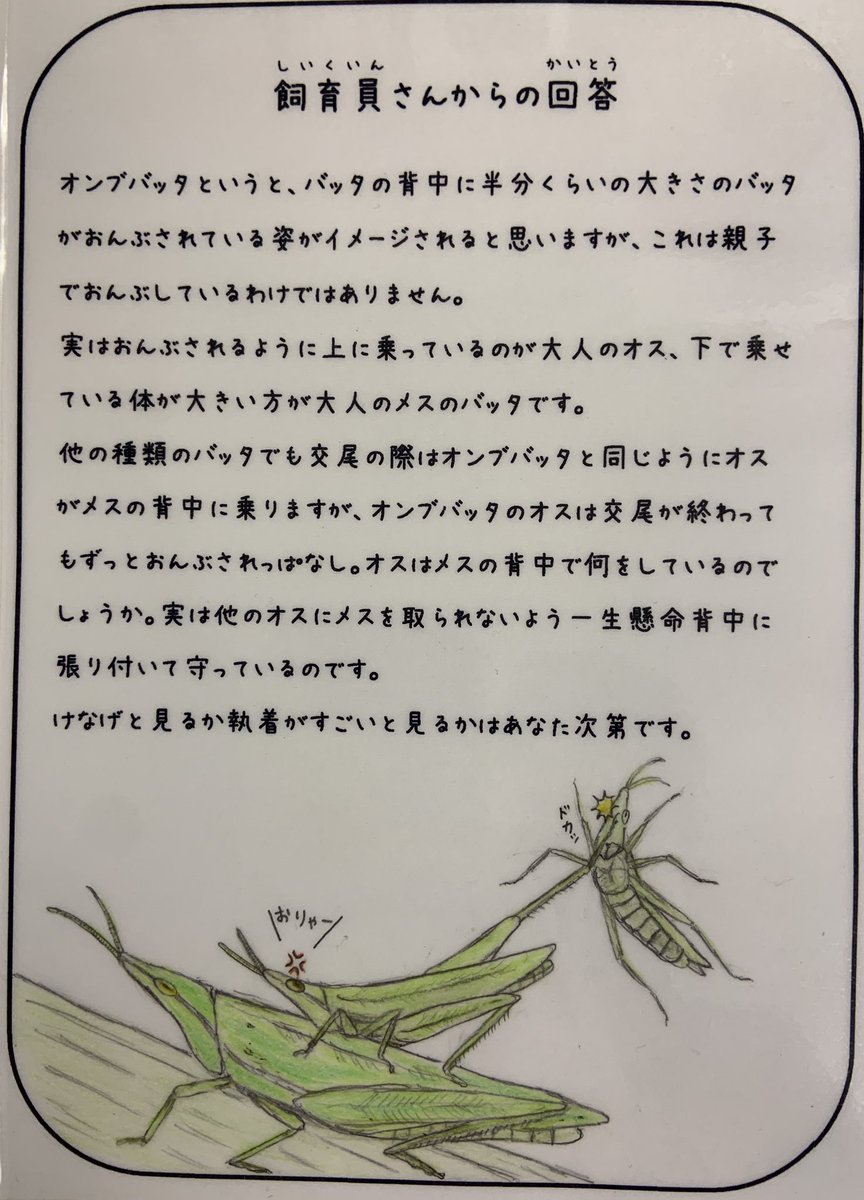 しいくいん かいとう
飼育員さんからの回答
オンブバッタというと、バッタの背中に半分くらいの大きさのバッタ
がおんぶされている姿がイメージされると思いますが、これは親子
でおんぶしているわけではありません。
実はおんぶされるように上に乗っているのが大人のオス、下で乗せ
ている体が大きい方が大人のメスのバッタです。
他の種類のバッタでも交尾の際はオンブバッタと同じようにオス
がメスの背中に乗りますが、オンブバッタのオスは交尾が終わって
もずっとおんぶされっぱなし。オスはメスの背中で何をしているので
しょうか。実は他のオスにメスを取られないよう一生懸命背中に
張り付いて守っているのです。
けなげと見るか執着がすごいと見るかはあなた次第です。
ドカッ
おりゃー